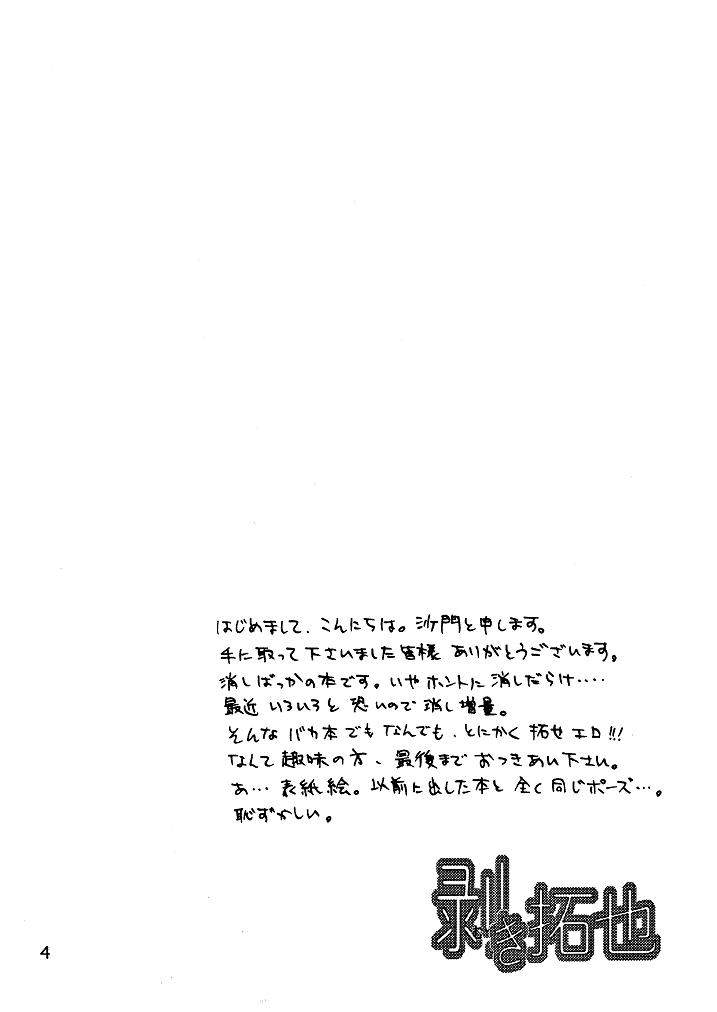 はじめまして、こんにちは。沙門と申します。
手に取って下さいました皆様 ありがとうございます。
消しばっかの本です。いやホントに消しだらけ‥‥
最近 いろいろと 恐いので 消し増量。
そんな バカ本でもなんでも、とにかく 拓也 エロ!!!
なんて 趣味の方、最後まで おつきあい下さい。
あ… 表紙絵。以前に出した本と 全く 同じポーズ…。
恥ずかしい。
剥き拓也
4